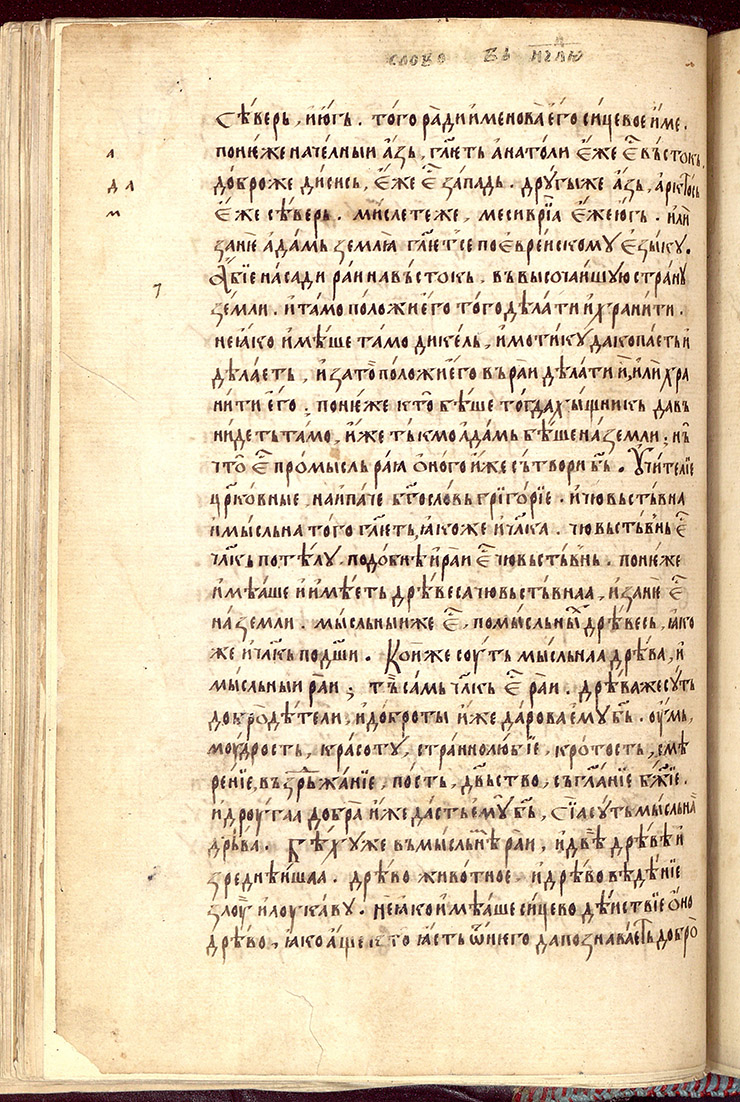 слово въ нⷣѣлю
Сѣверь, и҆ю҆гъ. того ради и҆менова е҆го си́цевое и҆ме.
поне́же начелныи а҆зь, гл҃еть а҆натоли е҆́же е҆сть въсто́къ,
а
до́бро же дисись, е҆́же е҆сть за́падь. дрꙋгы́е же а҆зь, а҆рктось
д л
е҆́же сѣ́верь. мислете же, месиврїа е҆́же ю҆гъ. и҆ли
м
занѐ а҆да́мь земля̀ гл҃етсе по е҆вре́искомꙋ е҆зы́кꙋ.
А҆бїе насади раи на въсто́кь. въ высоча́ишꙋю странꙋ
земли. и҆ та́мо положи е҆го̀ того дѣ́лати и҆ храни́ти.
не ꙗ҆ко и҆мѣ́ше та́мо дике́ль, и҆ моти́кꙋ да копа́еть и҆
дѣ́лаеть, и҆ за то̀ положи е҆го въ раи дѣ́лати и҆, и҆ли хра
ни́ти е҆го. поне́же кто̀ бѣ́ше тогда хы́щникь да в̾
ни́деть та́мо, и҆́же тъ́кмо а҆да́мь бѣ́ше на земли; нь
что̀ е҆сть про́мысль раю ѻ҆ного и҆́же сътвори бг҃ь. Оу҆чи́телїе
цр҃ко́вные, наипа́че бг҃осло́вь григо́рїе. и҆ чю́вьствьна
и҆ мы́сльна того гл҃еть, ꙗ҆́коже и҆ чл҃ка. чю́вьствьнь е҆сть
чл҃кь по тѣ́лꙋ. подо́бнѣ и҆ раи е҆сть чю́вьствьнь. поне́же
и҆мѣ́аше и҆ и҆мѣ́еть дрѣ́веса чю́вьствьнаа, и҆ занѐ е҆сть
на земли. мы́сльныи же е҆сть, по мы́сльны́хь дрѣ́весь, ꙗ҆ко
же и҆ чл҃кь по дш҃и. Кои́ же соу́ть мы́сльнаа дрѣ́ва, и҆
мы́сльныи раи; тъ̀ са́мь чл҃кь е҆сть раи. дрѣ́ва же сꙋ́ть
добродѣ́тели, и҆ добро́ты и҆́же дарова е҆мꙋ бг҃ь. оу҆мь,
моу́дрость, красотꙋ, страннолю́бїе, кро́тость, смѣ
ре́нїе, въздръжа́нїе, пость, дв҃ьство, съгла́нїе бж҃їе.
и҆ дроуга́а добра̀ и҆́же дасть е҆мꙋ бг҃ь, сїа сꙋть мы́сльнаа
дрѣва. Бѣ́хꙋ же въ мы́сльнѣ́мь раи, и҆ двѣ̀ дрѣ́вѣ и҆
зреднѣ́ишаа. дрѣ́во живо́тное. и҆ дрѣ́во вѣ́дѣнїе
злоу̀ и҆ лоука́вꙋ. не ꙗ҆ко и҆мѣ́аше си́цево дѣ́иствїе ѻ҆но
дрѣ́во, ꙗ҆ко а҆ще кто ꙗ҆сть ѿ него да познава́еть добро̀